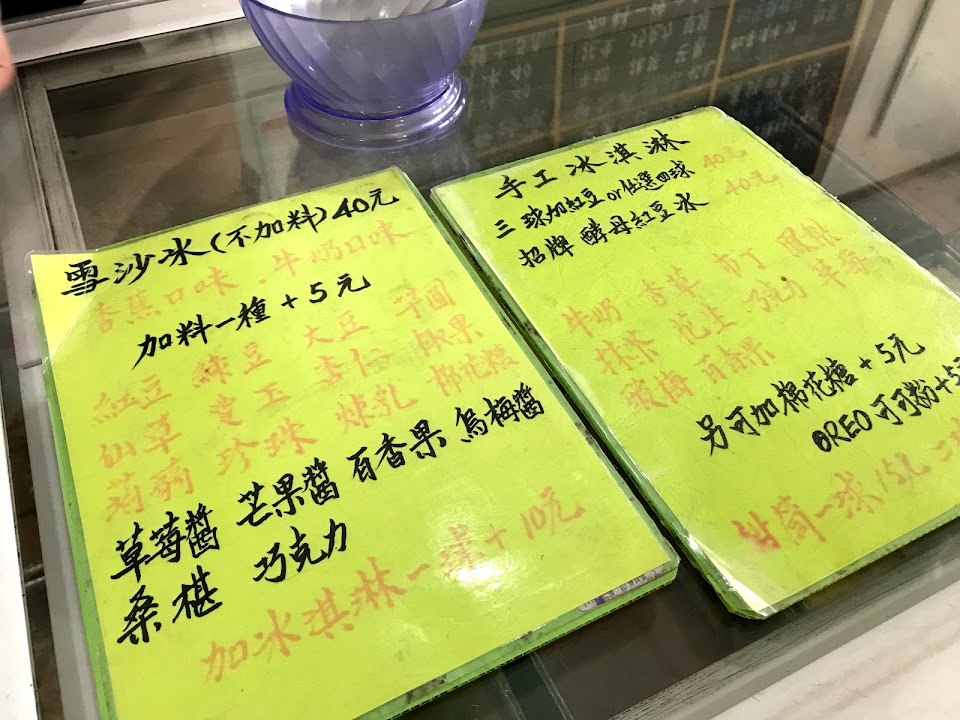 雪沙冰(不加料)40元
香蕉口味．牛奶口味
加料一種+5元
紅豆 綠豆 大豆 芋圓
仙草 愛玉 杏仁 椰果
蒟蒻 珍珠 煉乳 棉花糖
草莓醬 芒果醬 百香果 烏梅醬
桑椹 巧克力
加冰淇淋一球+10元
手工冰淇淋
三球加紅豆or任選四球 40元
招牌 酵母紅豆冰 40元
牛奶 香草 布丁 鳳梨
抹茶 花生 巧克力 草莓
酸梅 百香果
另可加棉花糖+5元
OREO可可粉+5
甜筒一球15元